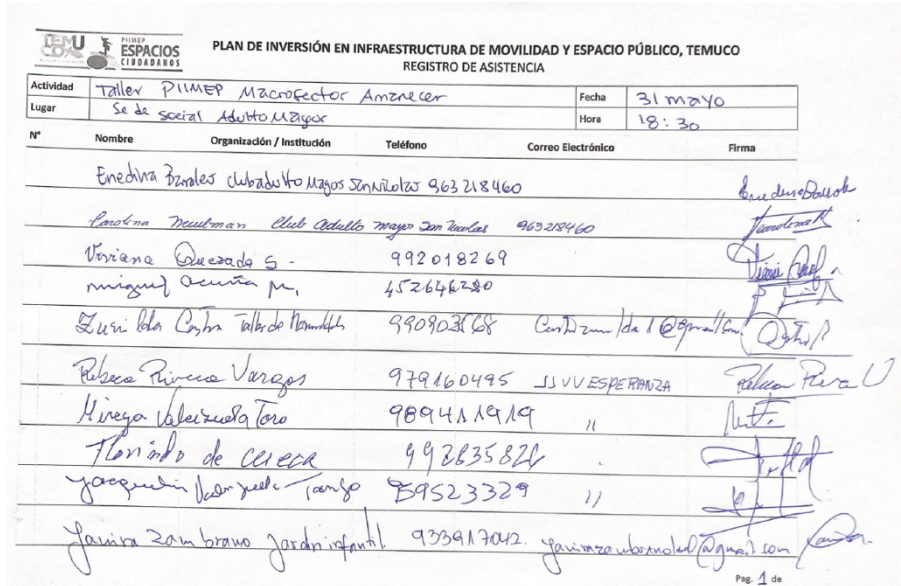 TEMUCO PIIMEP ESPACIOS CIUDADANOS
PLAN DE INVERSIÓN EN INFRAESTRUCTURA DE MOVILIDAD Y ESPACIO PÚBLICO, TEMUCO
REGISTRO DE ASISTENCIA
Actividad Taller PIIMEP Macrosector Amanecer Fecha 31 mayo
Lugar Sede social Adulto Mayor Hora 18:30
N° Nombre Organización / Institución Teléfono Correo Electrónico Firma
Enedina club adulto Mayor San Nicolas 963218460
Carolina Club adulto mayor San Nicolas 963218460
Viviana Quezada S. 992018269
miguel acuña m. 452646280
Castro Taller de
Rebeca Rivera Vargas 979160495 JJVV ESPERANZA Rebeca Rivera
Mireya Valenzuela Toro 989411919 "
Florindo de
Jacquelin 59523329 "
Yanira Zambrano Jardin infantil 933917042.
Pag. 1 de